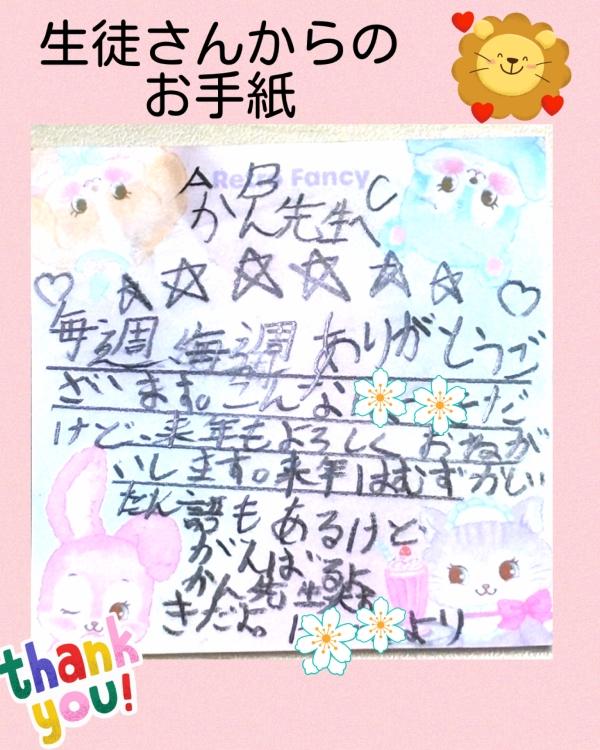 生徒さんからの
お手紙
Retro Fancy
A B C
かん先生へ
毎週毎週ありがとうご
ざいます。こんな だ
けど、来年もよろしくおねが
いします。来年はむずかしい
たん語もあるけど
がんばるよ
かん先生大す
きだよ。 より
thank
you!